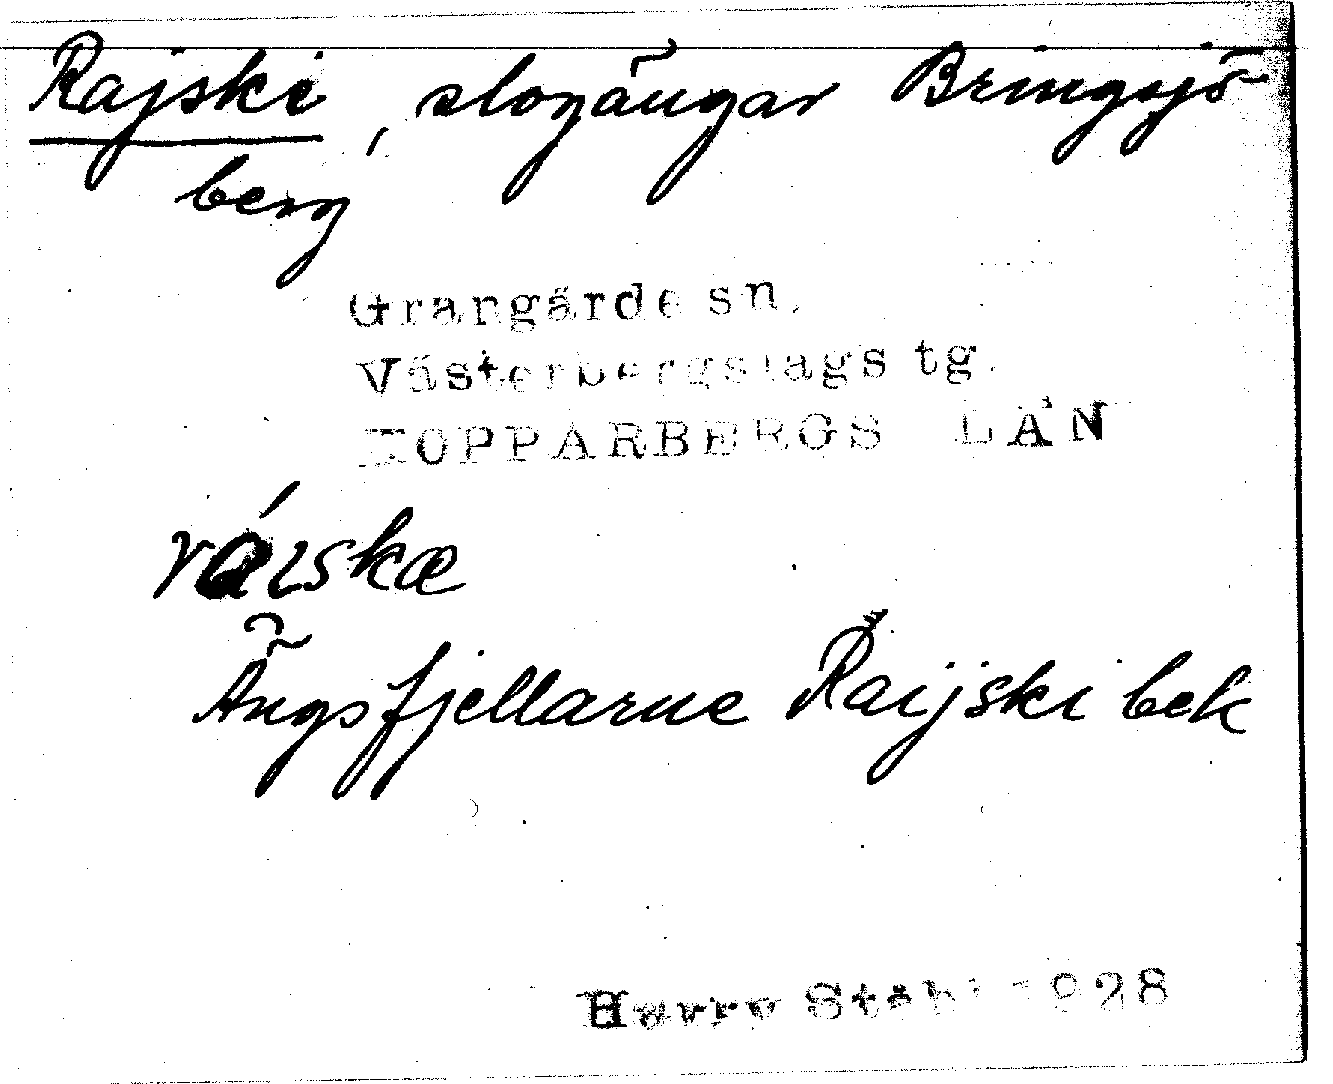 Rajski, slogängar Bringsjö-
berg
Grangärde sn.
Västerbergslags tg.
KOPPARBERGS LÄN
ráiskæ
Ängsfjellarne Raijski bek
Harry Ståhl 1928